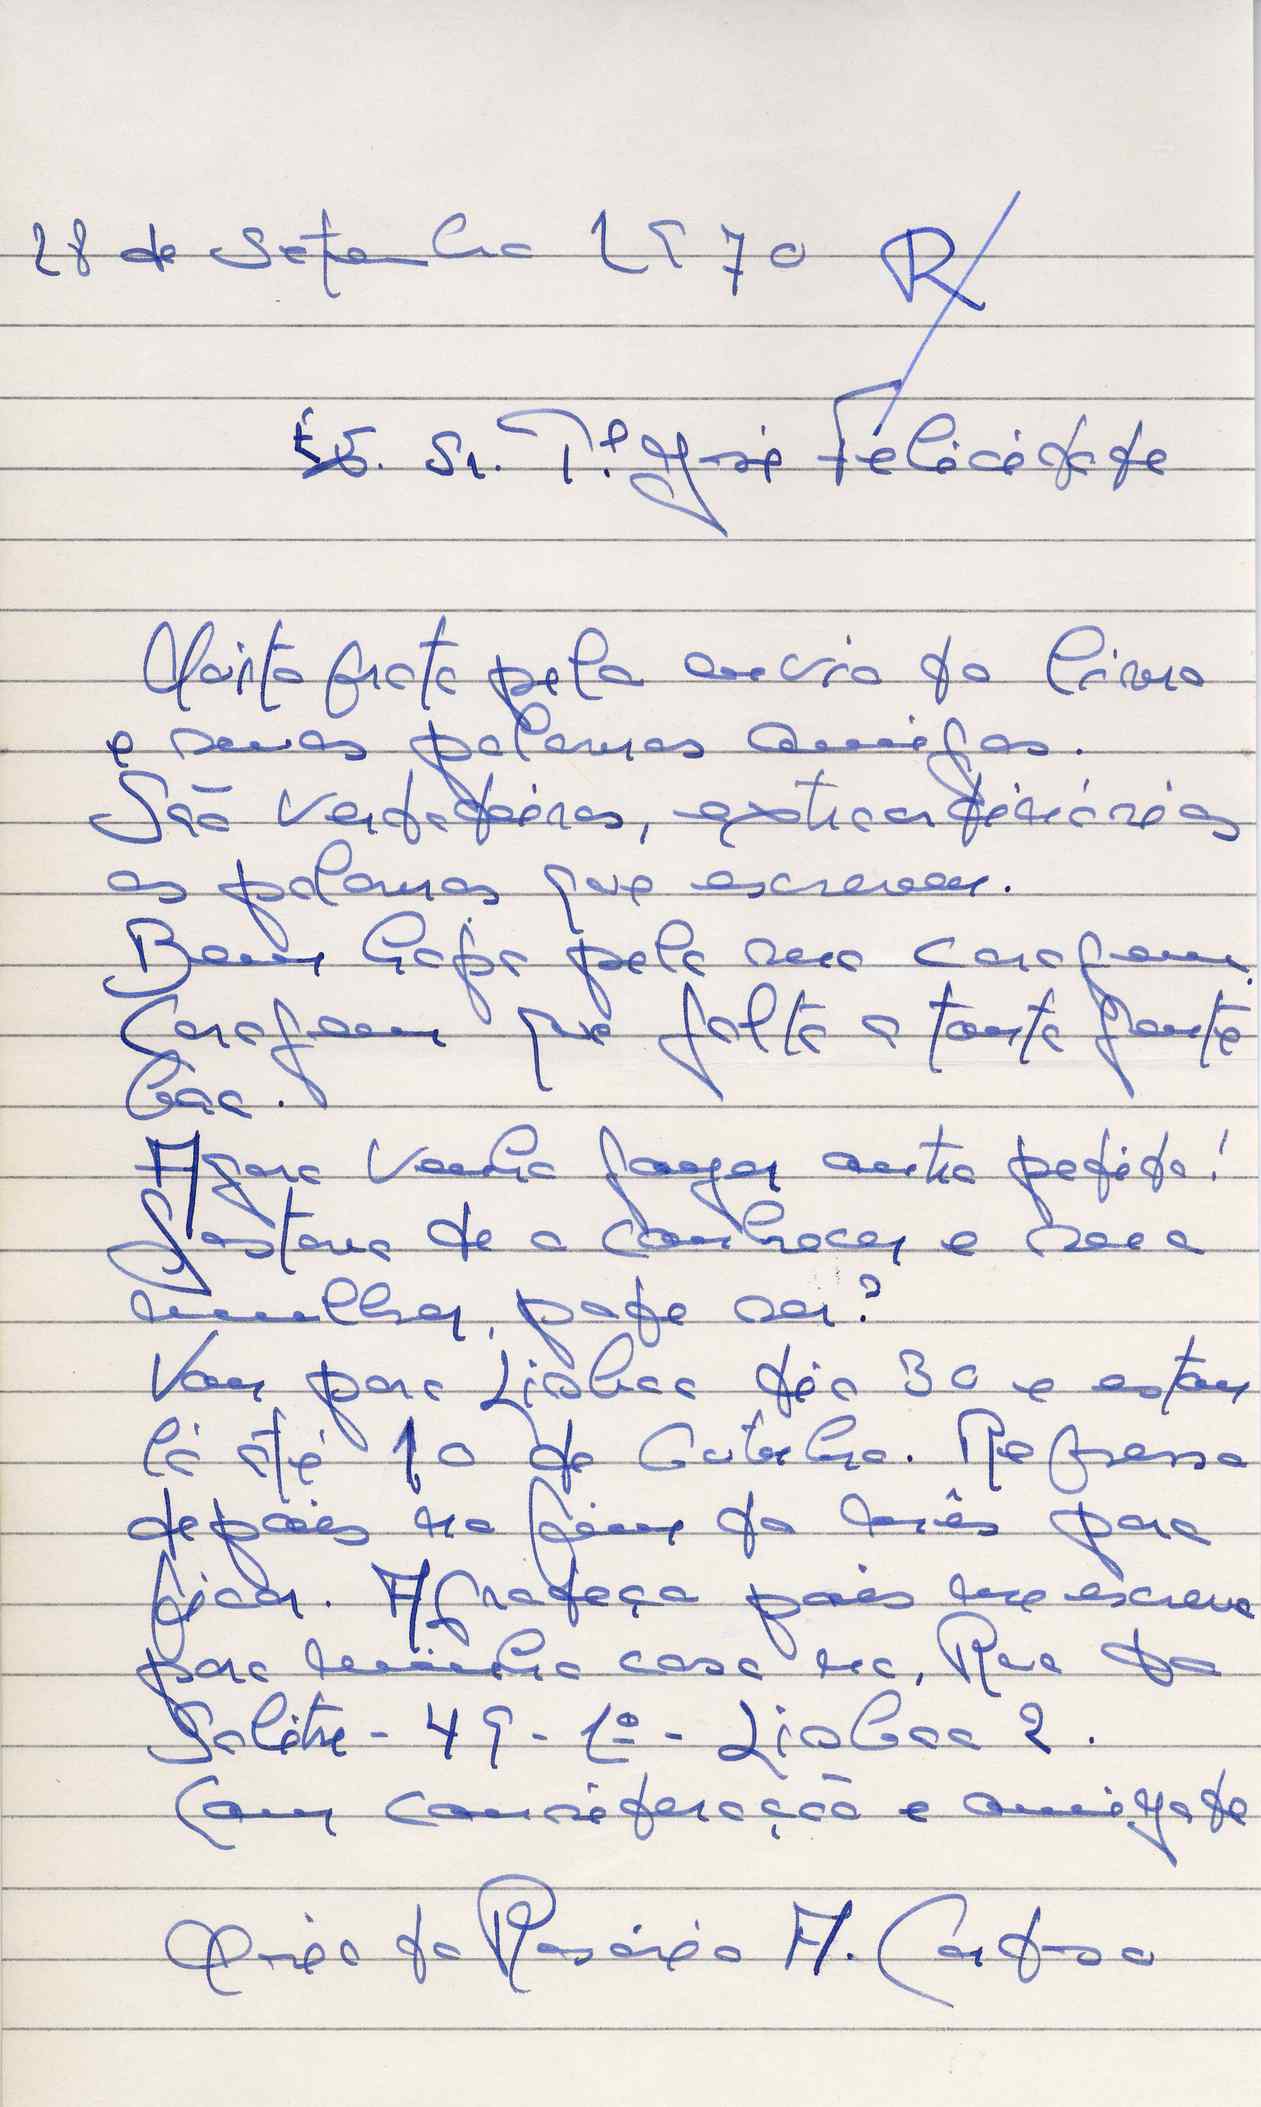 28 de Setembro 1970 R/
Ex. Sr. P.e José Felicidade
Muito grata pelo envio do livro
e suas palavras amigas.
São verdadeiras, extraordinárias
as palavras que escreveu.
Bem haja pela sua coragem.
Coragem que falta a tanta gente
boa.
Agora venho fazer outro pedido!
Gostava de o conhecer e sua
mulher, pode ser?
Vou para Lisboa dia 30 e estou
lá até 10 de Outubro. Regresso
depois no fim do mês para
ficar. Agradeço pois me escreva
para minha casa na, Rua do
Salitre - 49 - 1º - Lisboa 2.
Com consideração e amizade
Maria do Rosário A. Cardoso